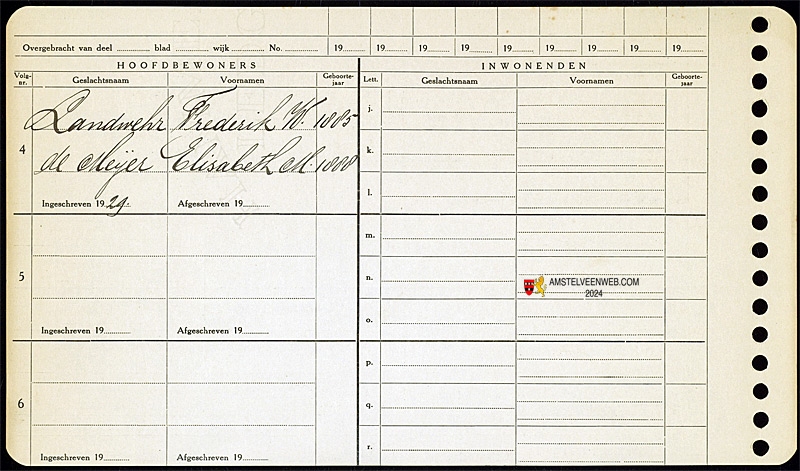 Overgebracht van deel ............ blad ............ wijk ............ No. ............ 19...... 19...... 19...... 19...... 19...... 19...... 19...... 19...... 19......
HOOFDBEWONERS INWONENDEN
Volg-nr. Geslachtsnaam Voornamen Geboorte-jaar Lett. Geslachtsnaam Voornamen Geboorte-jaar
Landwehr Frederik W. 1885 j.
4 de Meijer Elisabeth M. 1888 k.
l.
Ingeschreven 1929. Afgeschreven 19.........
m.
5 n.
AMSTELVEENWEB.COM
2024
o.
Ingeschreven 19......... Afgeschreven 19.........
p.
6 q.
r.
Ingeschreven 19......... Afgeschreven 19.........